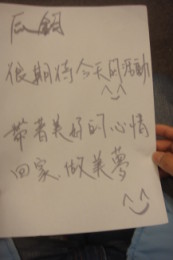 很期待今天的活動
帶著美好的心情
回家做美夢